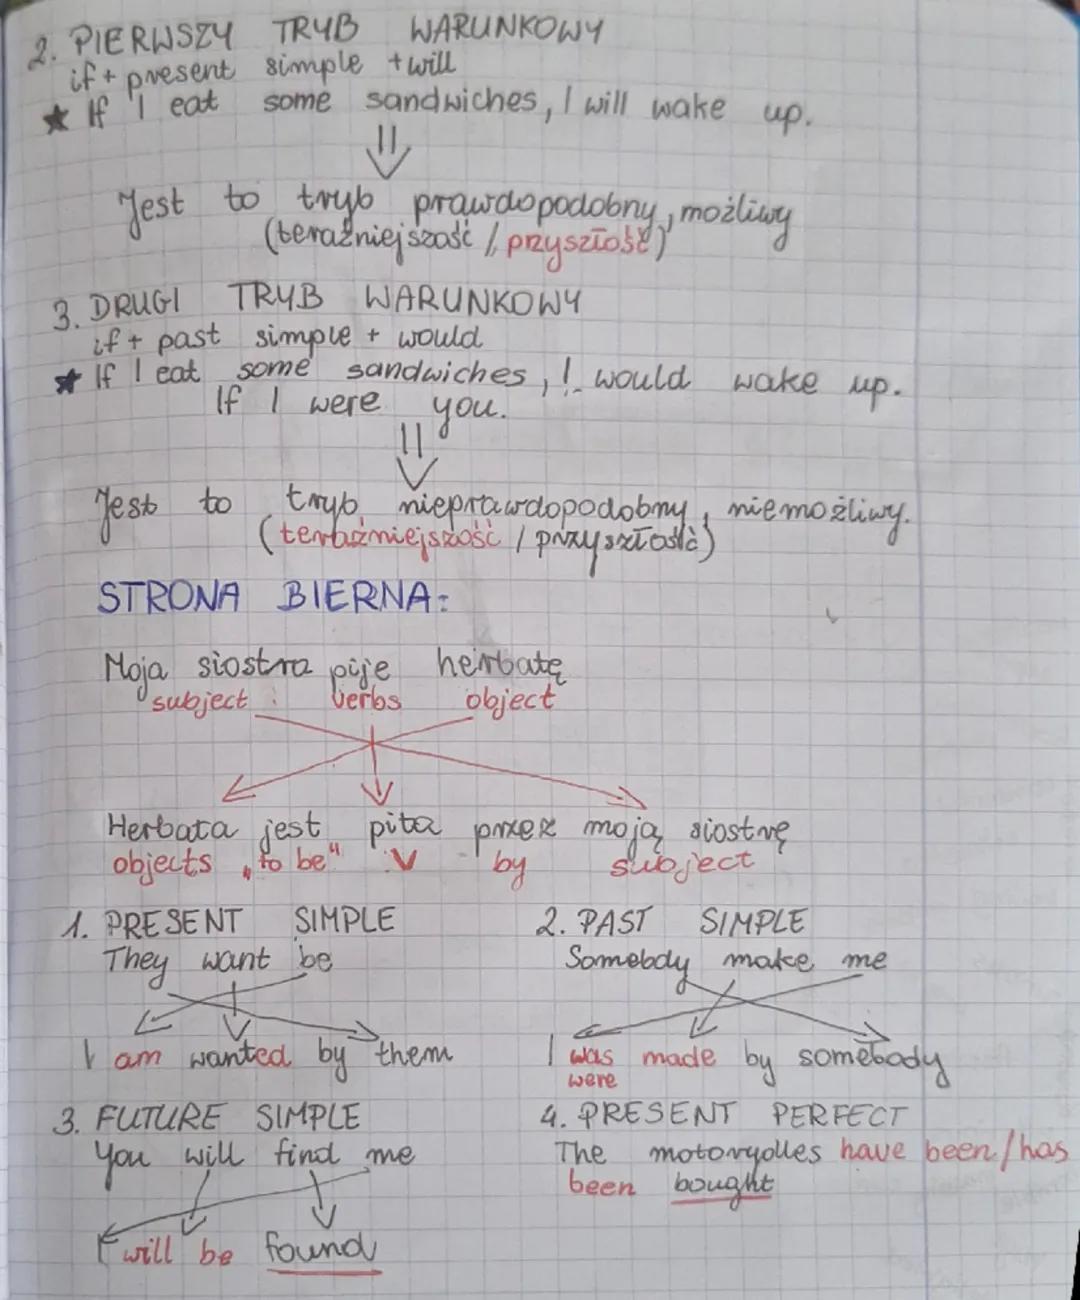 2. PIERWSZY TRYB WARUNKOWY
if + present simple + will
★ If I eat some sandwiches, I will wake up.
Jest to tryb prawdopodobny, możliwy
(teraźniejszość / przyszłość)
3. DRUGI TRYB WARUNKOWY
if + past simple + would
★ If I eat some sandwiches, I would wake up.
If I were you.
Jest to tryb nieprawdopodobny, niemożliwy.
(teraźniejszość / przyszłość)
STRONA BIERNA:
Moja siostra pije herbatę
subject verbs object
Herbata jest pita przez moją siostrę
objects „to be" V by subject
1. PRESENT SIMPLE
They want be
I am wanted by them
2. PAST SIMPLE
Somebdy make me
I was made by somebody
were
3. FUTURE SIMPLE
You will find me
I will be found
4. PRESENT PERFECT
The motorydles have been/has
been bought